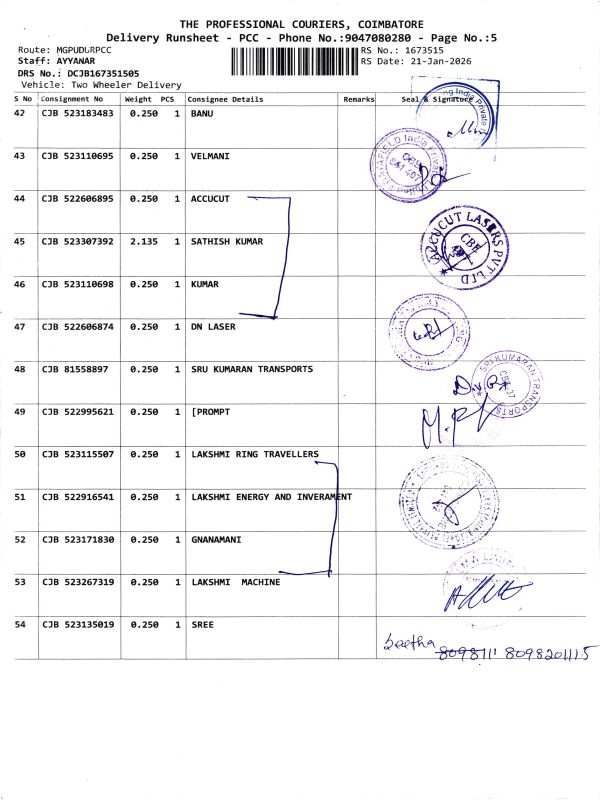 THE PROFESSIONAL COURIERS, COIMBATORE
Delivery Runsheet - PCC - Phone No.:9047080280 - Page No.:5
Route: MGPUDURPCC RS No.: 1673515
Staff: AYYANAR RS Date: 21-Jan-2026
DRS No.: DCJB167351505
Vehicle: Two Wheeler Delivery
S No Consignment No Weight PCS Consignee Details Remarks Seal & Signature
42 CJB 523183483 0.250 1 BANU
43 CJB 523110695 0.250 1 VELMANI
44 CJB 522606895 0.250 1 ACCUCUT
45 CJB 523307392 2.135 1 SATHISH KUMAR
ACCUCUT LASERS PVT LTD
CBE
46 CJB 523110698 0.250 1 KUMAR
47 CJB 522606874 0.250 1 DN LASER
48 CJB 81558897 0.250 1 SRU KUMARAN TRANSPORTS
SRI KUMARAN TRANSPORTS
49 CJB 522995621 0.250 1 [PROMPT
50 CJB 523115507 0.250 1 LAKSHMI RING TRAVELLERS
51 CJB 522916541 0.250 1 LAKSHMI ENERGY AND INVERAMENT
52 CJB 523171830 0.250 1 GNANAMANI
53 CJB 523267319 0.250 1 LAKSHMI MACHINE
54 CJB 523135019 0.250 1 SREE
8098111 8098201115